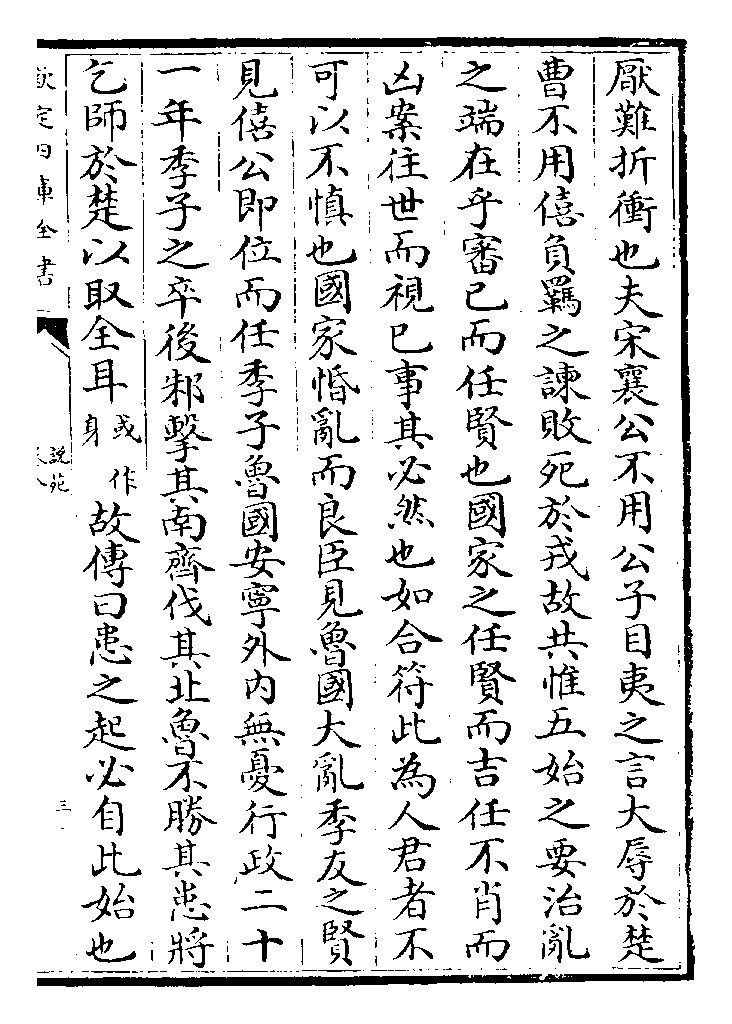 厭難折衝也夫宋襄公不用公子目夷之言大辱於楚
曹不用僖負羈之諫敗死於戎故共惟五始之要治亂
之端在乎審己而任賢也國家之任賢而吉任不肖而
凶案往世而視已事其必然也如合符此為人君者不
可以不慎也國家惛亂而良臣見魯國大亂季友之賢
見僖公即位而任季子魯國安寧外內無憂行政二十
一年季子之卒後邾擊其南齊伐其北魯不勝其患將
乞師於楚以取全耳或作身故傳曰患之起必自此始也
欽定四庫全書
說苑
三